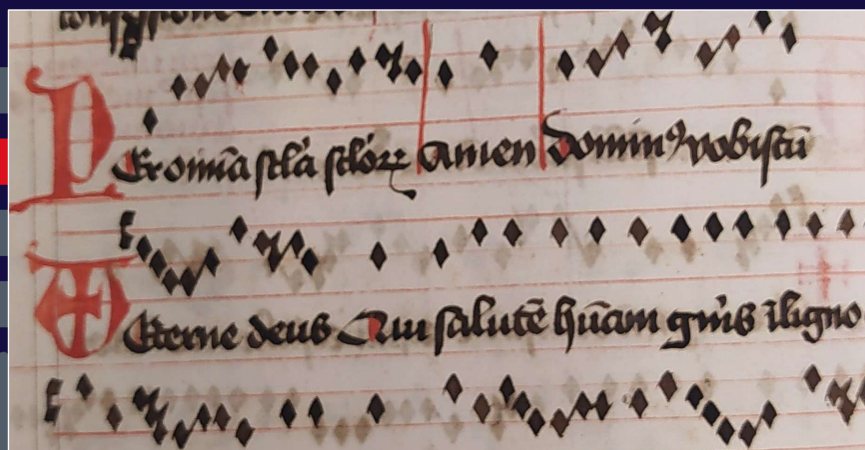 Per om̄ia sc̄la sc̄lorꝝ Amen dominꝰ vobiscū
Eterne deus Qui salutē hūam gn̄is ī ligno